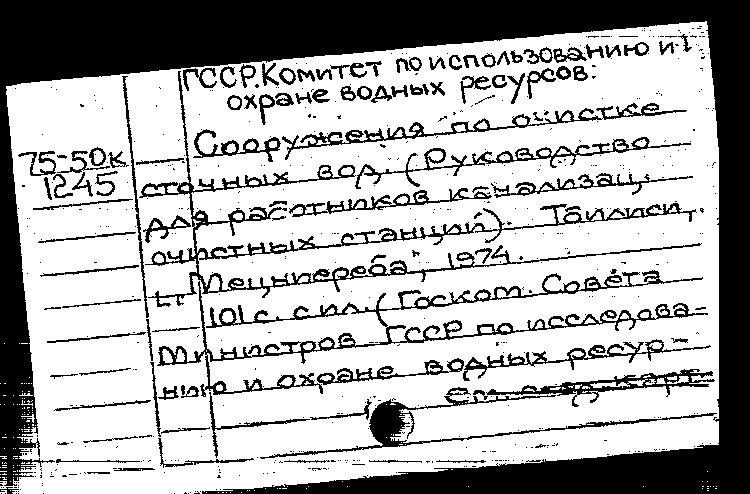 ГССР. Комитет по использованию и
охране водных ресурсов.
75-50к
1245
Сооружения по очистке
сточных вод. (Руководство
для работников канализац.
очистных станций). Тбилиси,
"Мецниереба", 1974.
101 с. с ил. (Госком. Совета
Министров ГССР по исследова-
нию и охране водных ресур-
См. след. карт.